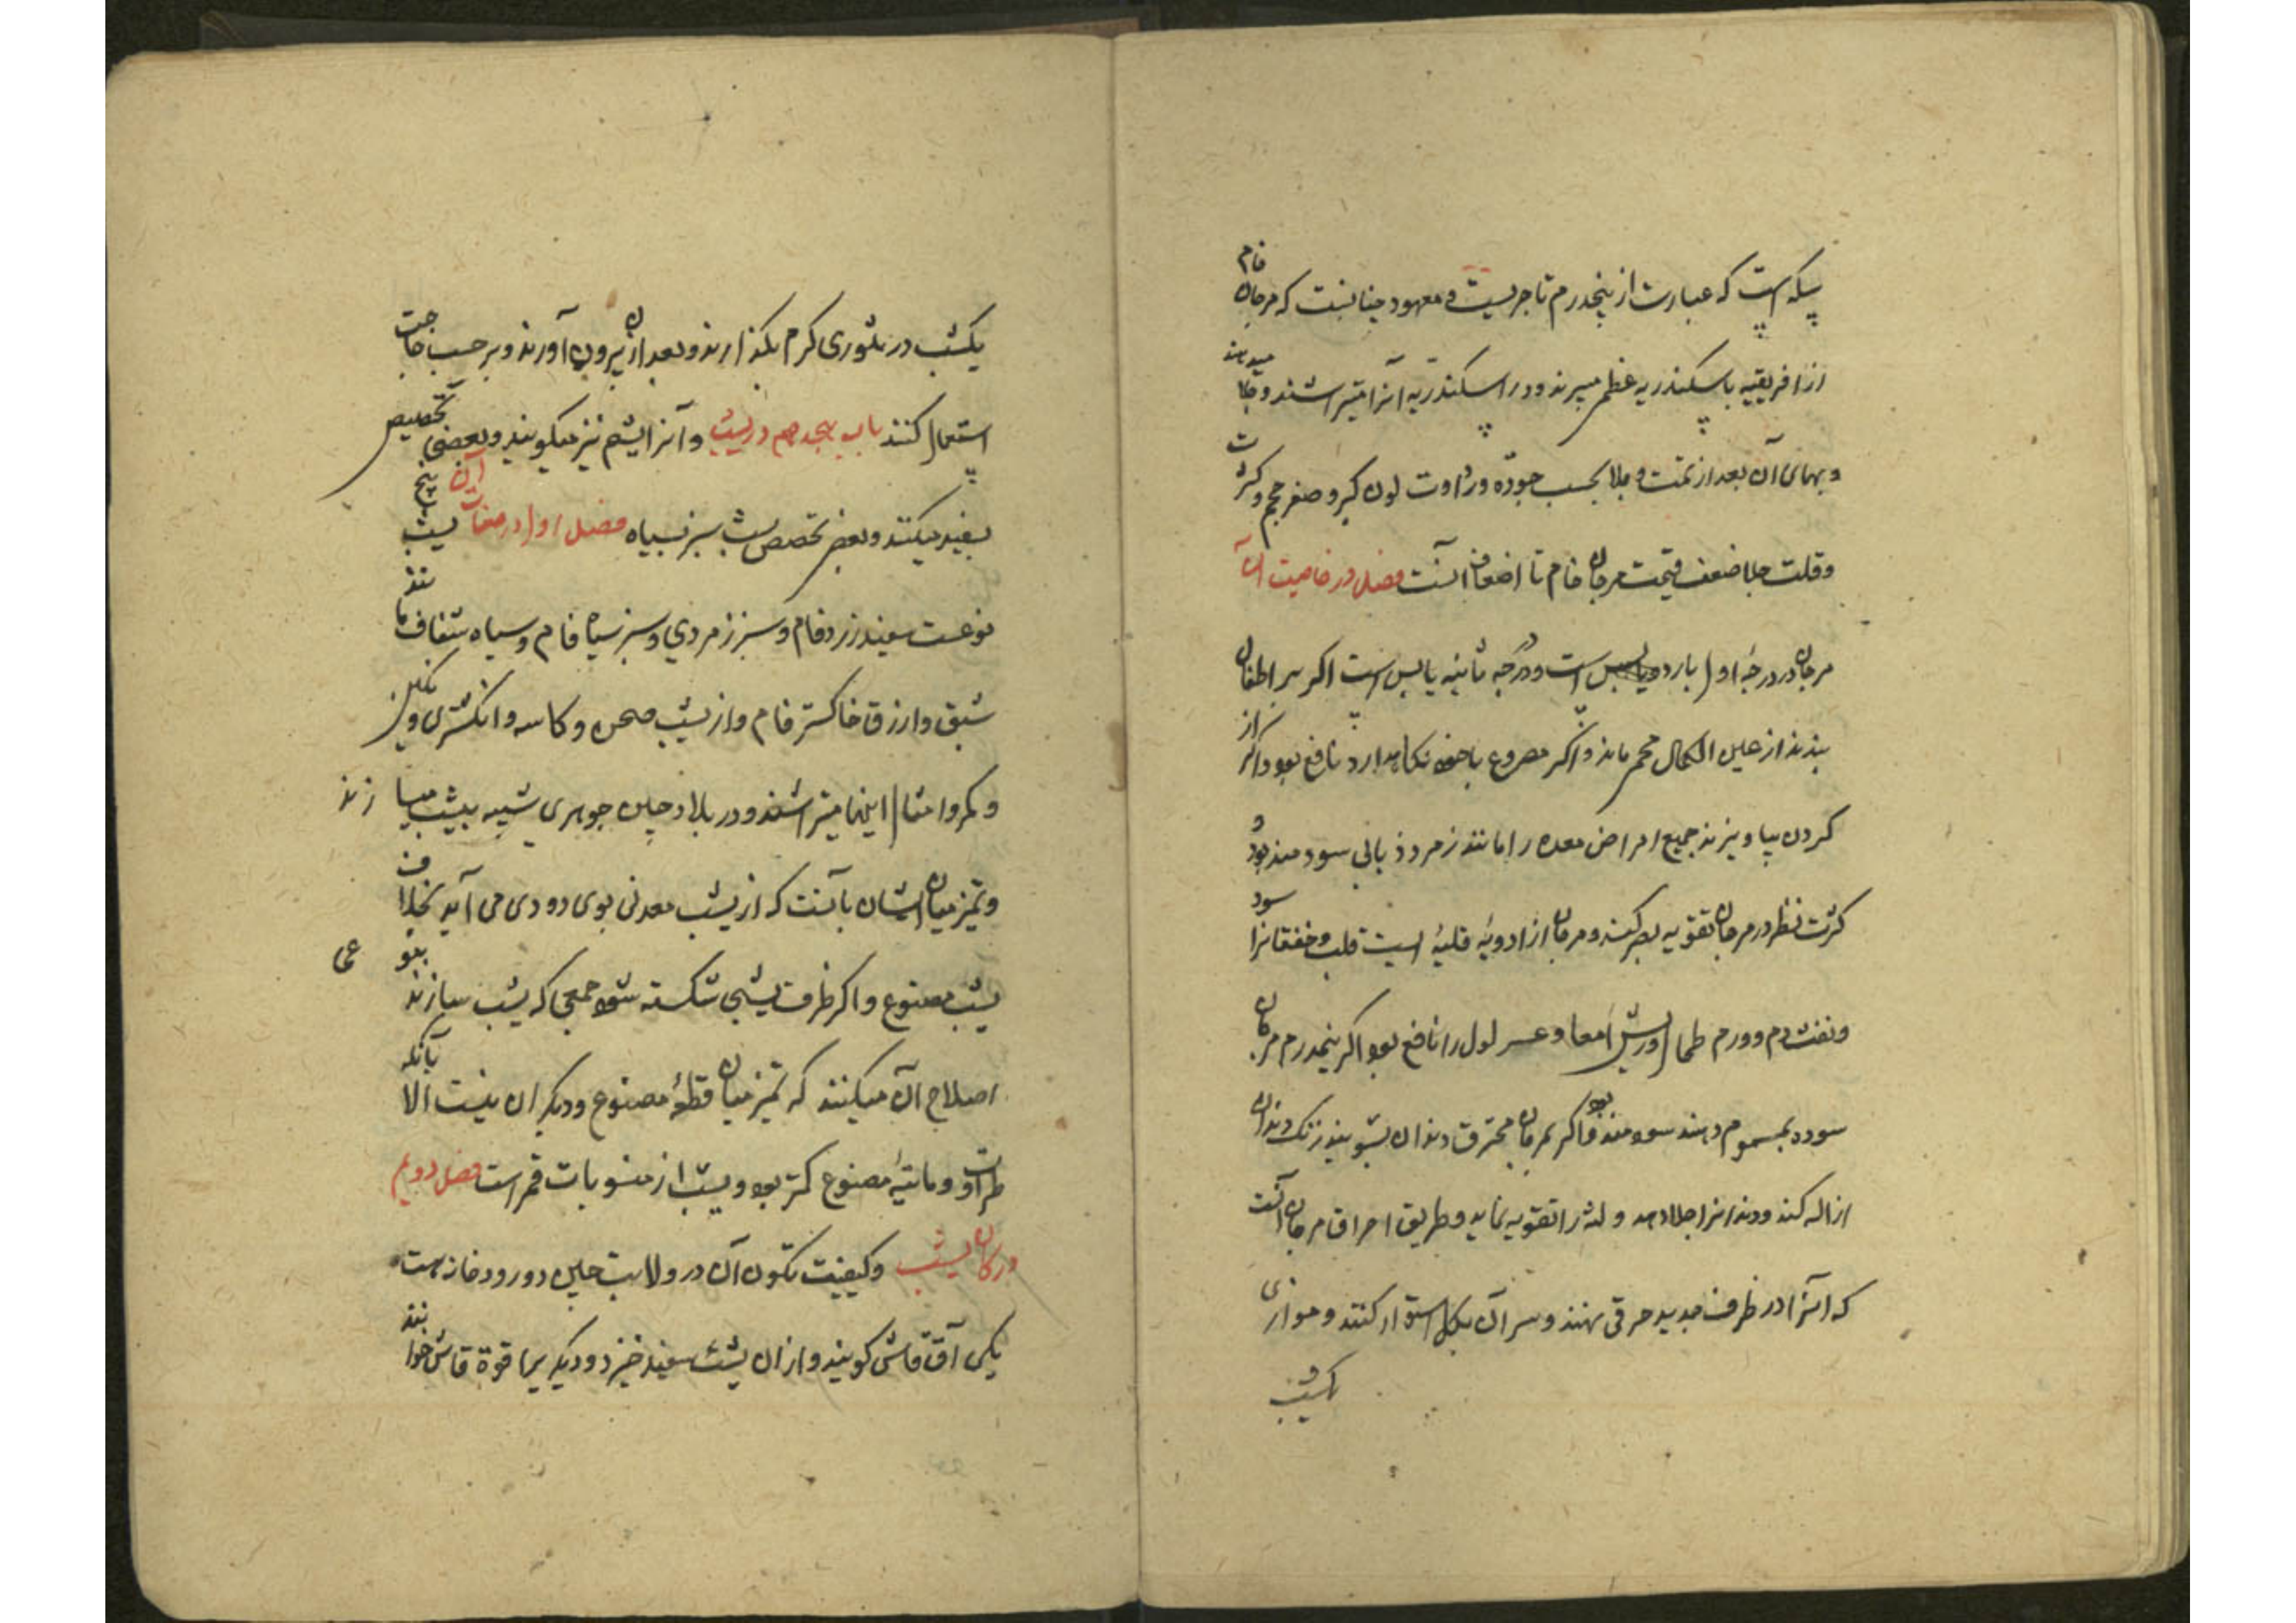 پیکه است که عبارت از پنجدرم تاجریست و معهود چنانست که مرجان خام
از افریقیه باسکندریه عظمی میبرند و در اسکندریه آنرا میتراشند و جلا میدهند
و بهای آن بعد از تمت و جلا بحسب جوده و رداوت لون کبر و صغر حجم و کثرت
و قلت جلا ضعف قیمت مرجان خام تا اضعاف آنست فصل در خاصیت آن
مرجان در درجهٔ اول بارد است و در درجه ثانیه یابس است اکر بر اطفال
بندند از عین الکمال محروس ماند و اکر مصروع با خود نکاه دارد نافع بود و اکر از
کردن بیاویزند جمیع امراض معده را مانند زمرد ذبابی سودمند بود و
کثرت نظر در مرجان تقویه بصر کند و مرجان از ادویهٔ قلبیهٔ است قلب و خفقانرا سود
و نفث دم و ورم طحال و ریش امعا و عسر لول را نافع بود اکر پنجدرم مرجان
سوده بمسموم دهند سودمند بود و اکر بمرجان محترق دندان بشویند زنک دندان
ازاله کند و دندانرا جلا دهد و لثه را تقویه نماید و طریق احراق مرجان آنست
که آنرا در ظرف جدید حرقی نهند و سر آن بکل استوار کنند و موازی
یکشب
یکشب در تنوری کرم بکذارند و بعد از آن بیرون آورند و برحسب حاجت
استعمال کنند باب هجدهم در یشب و آنرا یشم نیز میکویند و بعضی تخصیص
بسفید میکنند و بعضی تخصیص یشب سبز بسیاه فصل اول در صفات آن یشب پنج
نوعست سفید زرد فام و سبز زمردی و سبز سیاه فام و سیاه شفاف مانند
شبق و ازرق خاکستر فام و از یشب صحن و کاسه و انکشتری و نکین
و کمر و امثال اینها میتراشند و در بلاد چین جوهری شبیه بیشب میسازند
و تمیز میان ایشان بآنست که از یشب معدنی بوی دودی می آید بخلاف
یشب مصنوع و اکر ظرف یشبی شکسته شود جمعی که یشب سازند بنوعی
اصلاح آن میکنند که تمیز میان قطعهٔ مصنوع و دیکر ان نیست الا بآنکه
طراوت و مائیهٔ مصنوع کمتر بود و یشب از منسوبات قمر است فصل دویم
در کان یشب و کیفیت تکون آن در ولایت چین دو رودخانه هست
یکی آق قاش کویند و ازان یشب سفید خیزد و دیکر یرا قوة قاش خوانند